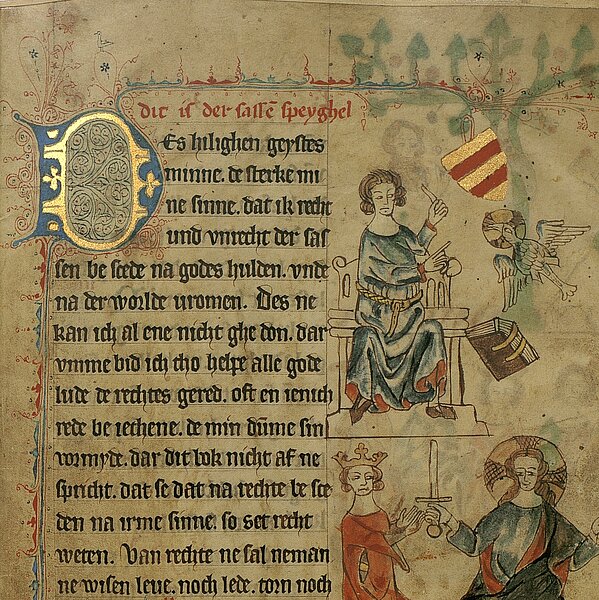 dit is der sassē speyghel
Des hilighen geystes
minne. de sterke mi
ne sinne. dat ik recht
und vnrecht der sas
sen be scede na godes hulden. vnde
na der worlde vromen. Des ne
kan ich al ene nicht ghe don. dar
vmme bid ich tho helpe alle gode
lude de rechtes gered. oft en ienich
rede be iechene. de min dūme sin
vormyde. dar dit bok nicht af ne
spricht. dat se dat na rechte be sce
den na irme sinne. so set recht
weten. Van rechte ne sal neman
ne wisen leue. noch lede. torn noch